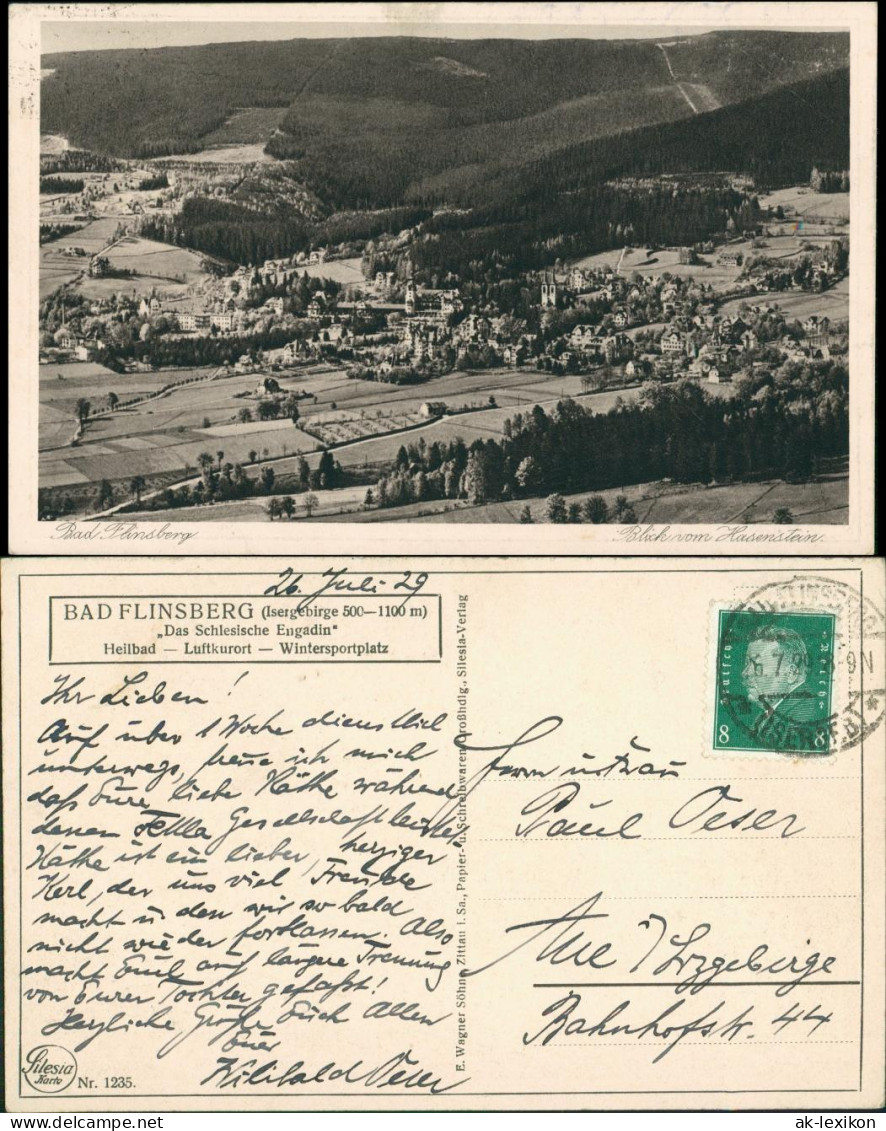 Bad Flinsberg
Blick vom Hasenstein.
26. Juli 29
BAD FLINSBERG (Isergebirge 500—1100 m)
„Das Schlesische Engadin"
Heilbad — Luftkurort — Wintersportplatz
Ihr Lieben!
Auf über 1 Woche dienstlich
unterwegs, freue ich mich
daß Eure liebe Käthe während
dessen Gesellschaft leistet.
Käthe ist ein lieber, herziger
Kerl, der uns viel Freude
macht u. den wir so bald
nicht wieder fortlassen. Also
macht Euch auf längere Trennung
von Eurer Tochter gefaßt!
Herzliche Grüße Euch Allen
Euer
Willibald Oeser
Silesia
Karte
Nr. 1235.
E. Wagner Söhne, Zittau i. Sa., Papier- u. Schreibwaren-Großhdlg., Silesia-Verlag
Deutsches Reich
8 8
BAD FLINSBERG
6.7.29 8-9N
* (ISERGEB) *
Herrn u. Frau
Paul Oeser
Aue i/Erzgebirge
Bahnhofstr. 44
ak-lexikon.com